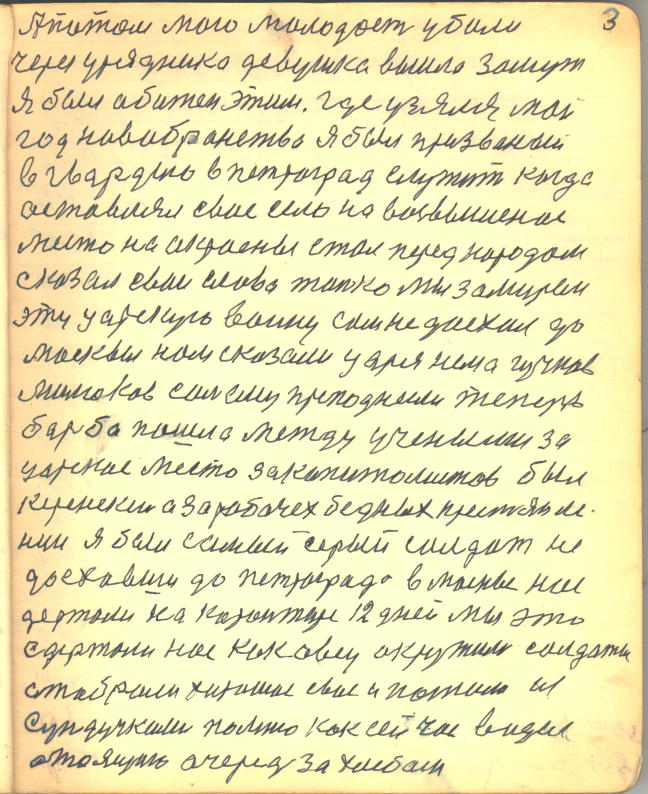 3
Апотом мого молодост убили
через урядника девушка вышла замуж
Я был абажен этим. где узяля мой
год новобранства Я был призваный
в гвардию в петроград служит когда
оставлял свое село на возвышеное
место на окраены стал перед народом
сказал свои слова толко мы замирем
эту царскую воину сомнедоехал до
москвы нам сказали царя нема гучков
милюков солему преподнели теперь
барба пошла между учеными за
царское место закапитолистов был
Керенский а зарабочех бедных
Я был самый серый солдат не
доехавши до петрограда в москве нас
держали на карантине 12 дней мы это
сдержали нас как овец окружили солдаты
отобрали хатошое свое и пошли
сундучками полно как сей час
стоящию очеред за хлебом